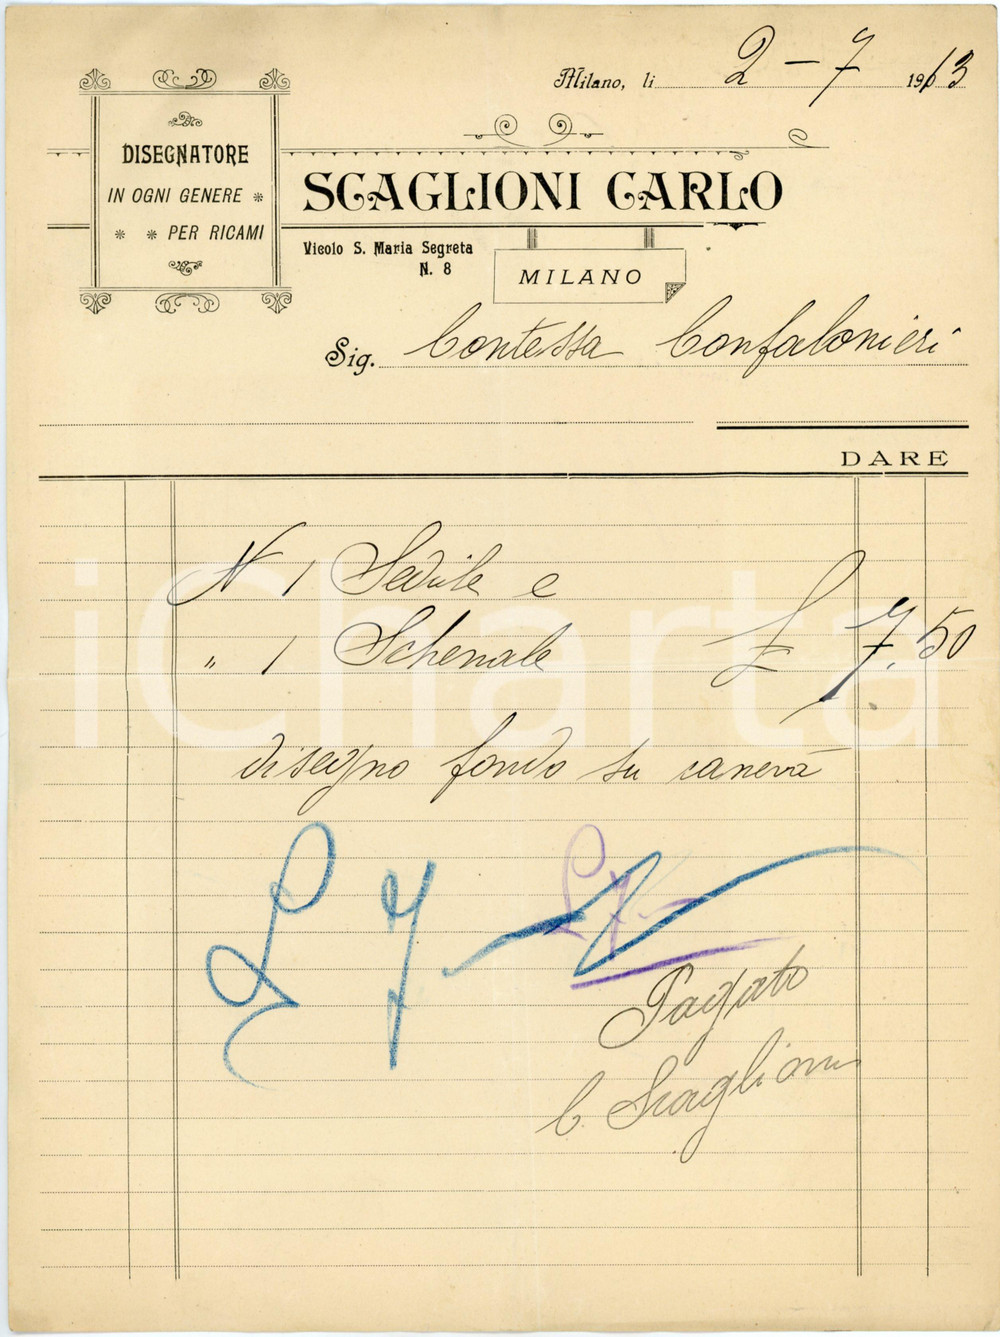 Milano, li 2 - 7 1913
DISEGNATORE
IN OGNI GENERE
PER RICAMI
SCAGLIONI CARLO
Vicolo S. Maria Segreta
N. 8
MILANO
Sig. Contessa Confalonieri
DARE
N 1 Sedile e
" 1 Schenale £ 7.50
disegno fondo su canevà
L 7
L 7 -
Pagato
C. Scaglioni
iCharta